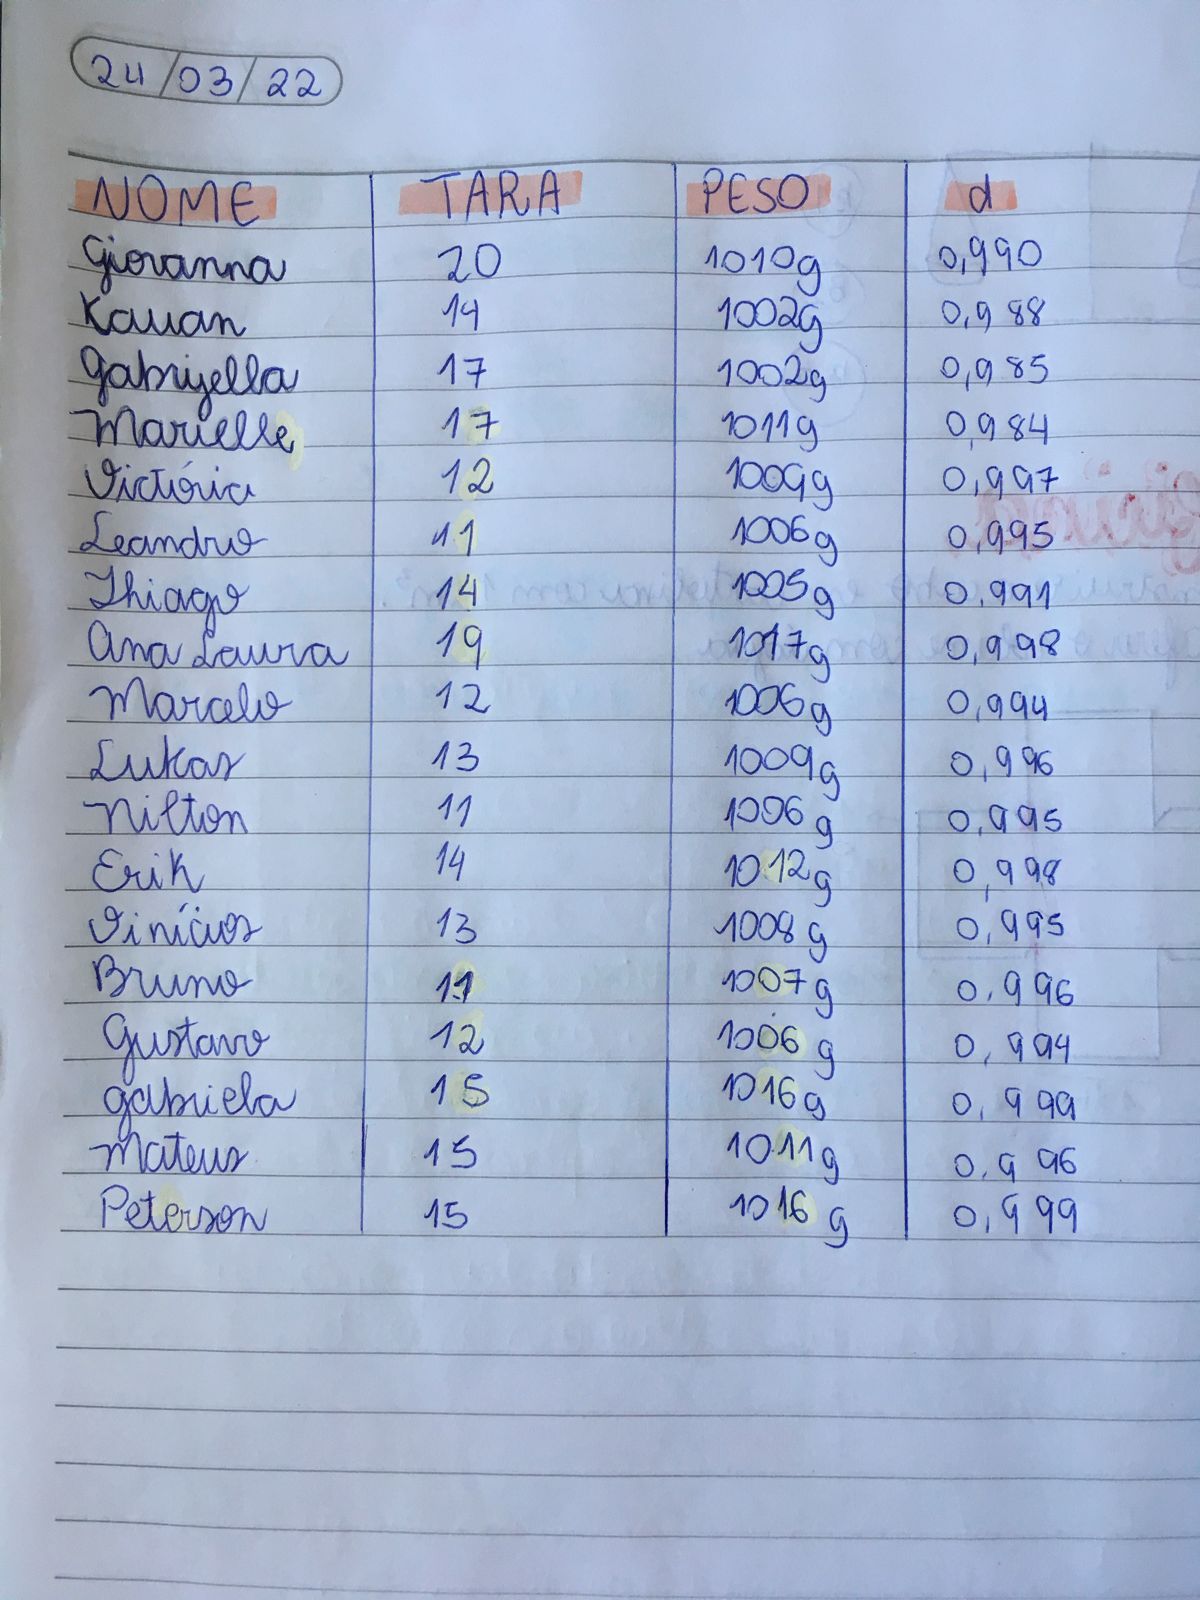 24/03/22
NOME TARA PESO d
Giovanna 20 1010g 0,990
Kauan 14 1002g 0,988
Gabryella 17 1002g 0,985
Marielle 17 1011g 0,984
Victória 12 1009g 0,997
Leandro 11 1006g 0,995
Thiago 14 1005g 0,991
Ana Laura 19 1017g 0,998
Marcelo 12 1006g 0,994
Lukas 13 1009g 0,996
Nilton 11 1006g 0,995
Erik 14 1012g 0,998
Vinícius 13 1008g 0,995
Bruno 11 1007g 0,996
Gustavo 12 1006g 0,994
gabriela 15 1016g 0,999
Mateus 15 1011g 0,996
Peterson 15 1016g 0,999